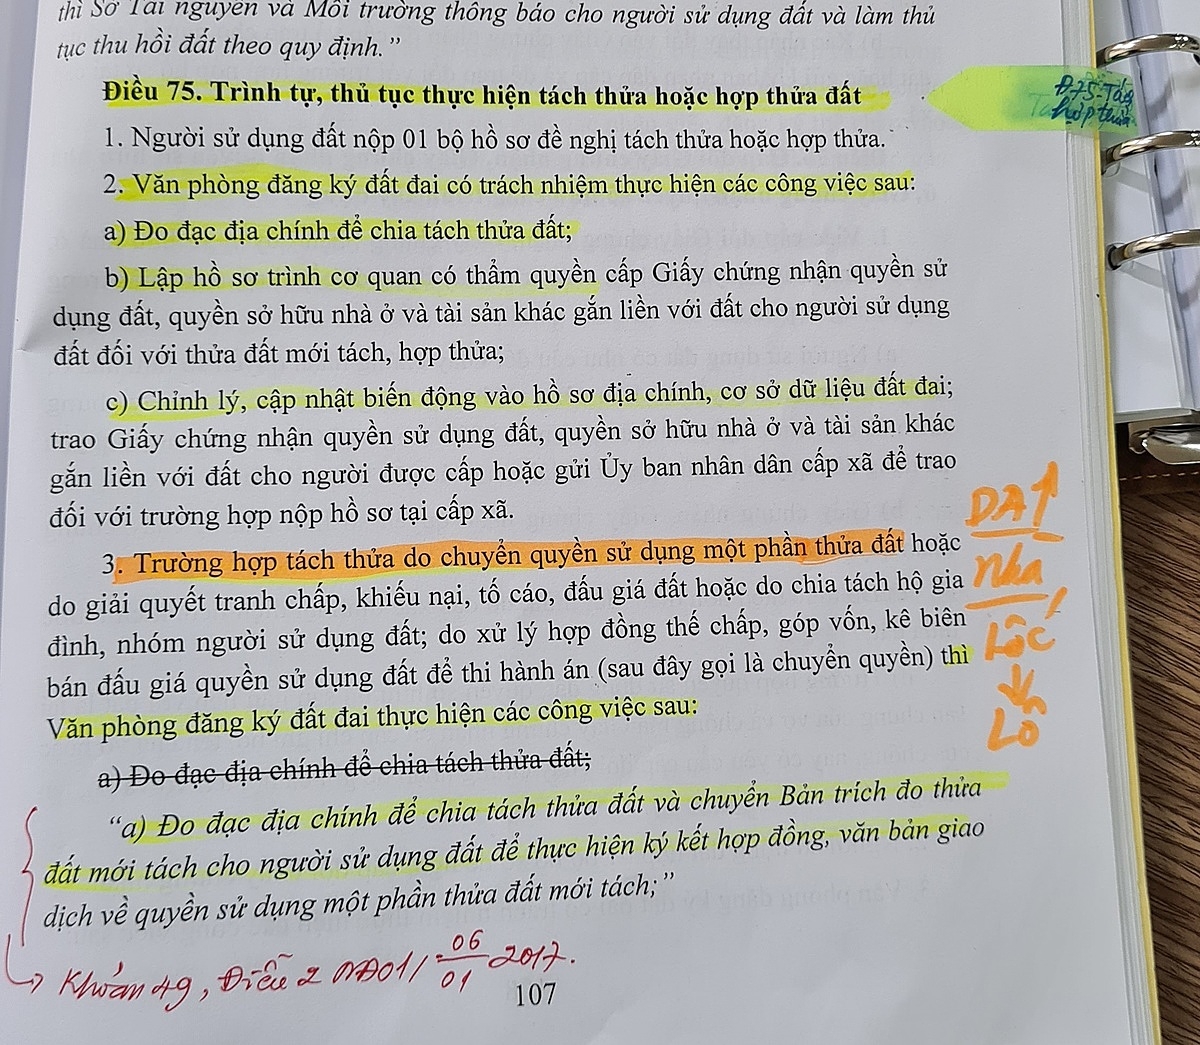 thì Sở Tài nguyên và Môi trường thông báo cho người sử dụng đất và làm thủ
tục thu hồi đất theo quy định.”
Điều 75. Trình tự, thủ tục thực hiện tách thửa hoặc hợp thửa đất
1. Người sử dụng đất nộp 01 bộ hồ sơ đề nghị tách thửa hoặc hợp thửa.
2. Văn phòng đăng ký đất đai có trách nhiệm thực hiện các công việc sau:
a) Đo đạc địa chính để chia tách thửa đất;
b) Lập hồ sơ trình cơ quan có thẩm quyền cấp Giấy chứng nhận quyền sử
dụng đất, quyền sở hữu nhà ở và tài sản khác gắn liền với đất cho người sử dụng
đất đối với thửa đất mới tách, hợp thửa;
c) Chỉnh lý, cập nhật biến động vào hồ sơ địa chính, cơ sở dữ liệu đất đai;
trao Giấy chứng nhận quyền sử dụng đất, quyền sở hữu nhà ở và tài sản khác
gắn liền với đất cho người được cấp hoặc gửi Ủy ban nhân dân cấp xã để trao
đối với trường hợp nộp hồ sơ tại cấp xã.
3. Trường hợp tách thửa do chuyển quyền sử dụng một phần thửa đất hoặc
do giải quyết tranh chấp, khiếu nại, tố cáo, đấu giá đất hoặc do chia tách hộ gia
đình, nhóm người sử dụng đất; do xử lý hợp đồng thế chấp, góp vốn, kê biên
bán đấu giá quyền sử dụng đất để thi hành án (sau đây gọi là chuyển quyền) thì
Văn phòng đăng ký đất đai thực hiện các công việc sau:
a) Đo đạc địa chính để chia tách thửa đất;
“a) Đo đạc địa chính để chia tách thửa đất và chuyển Bản trích đo thửa
đất mới tách cho người sử dụng đất để thực hiện ký kết hợp đồng, văn bản giao
dịch về quyền sử dụng một phần thửa đất mới tách;”
Khoản 49, Điều 2 NĐ01/ 06/01 2017.
107
Đ75-Tách
hợp thửa
DA↑
nha
LỐC
LÔ